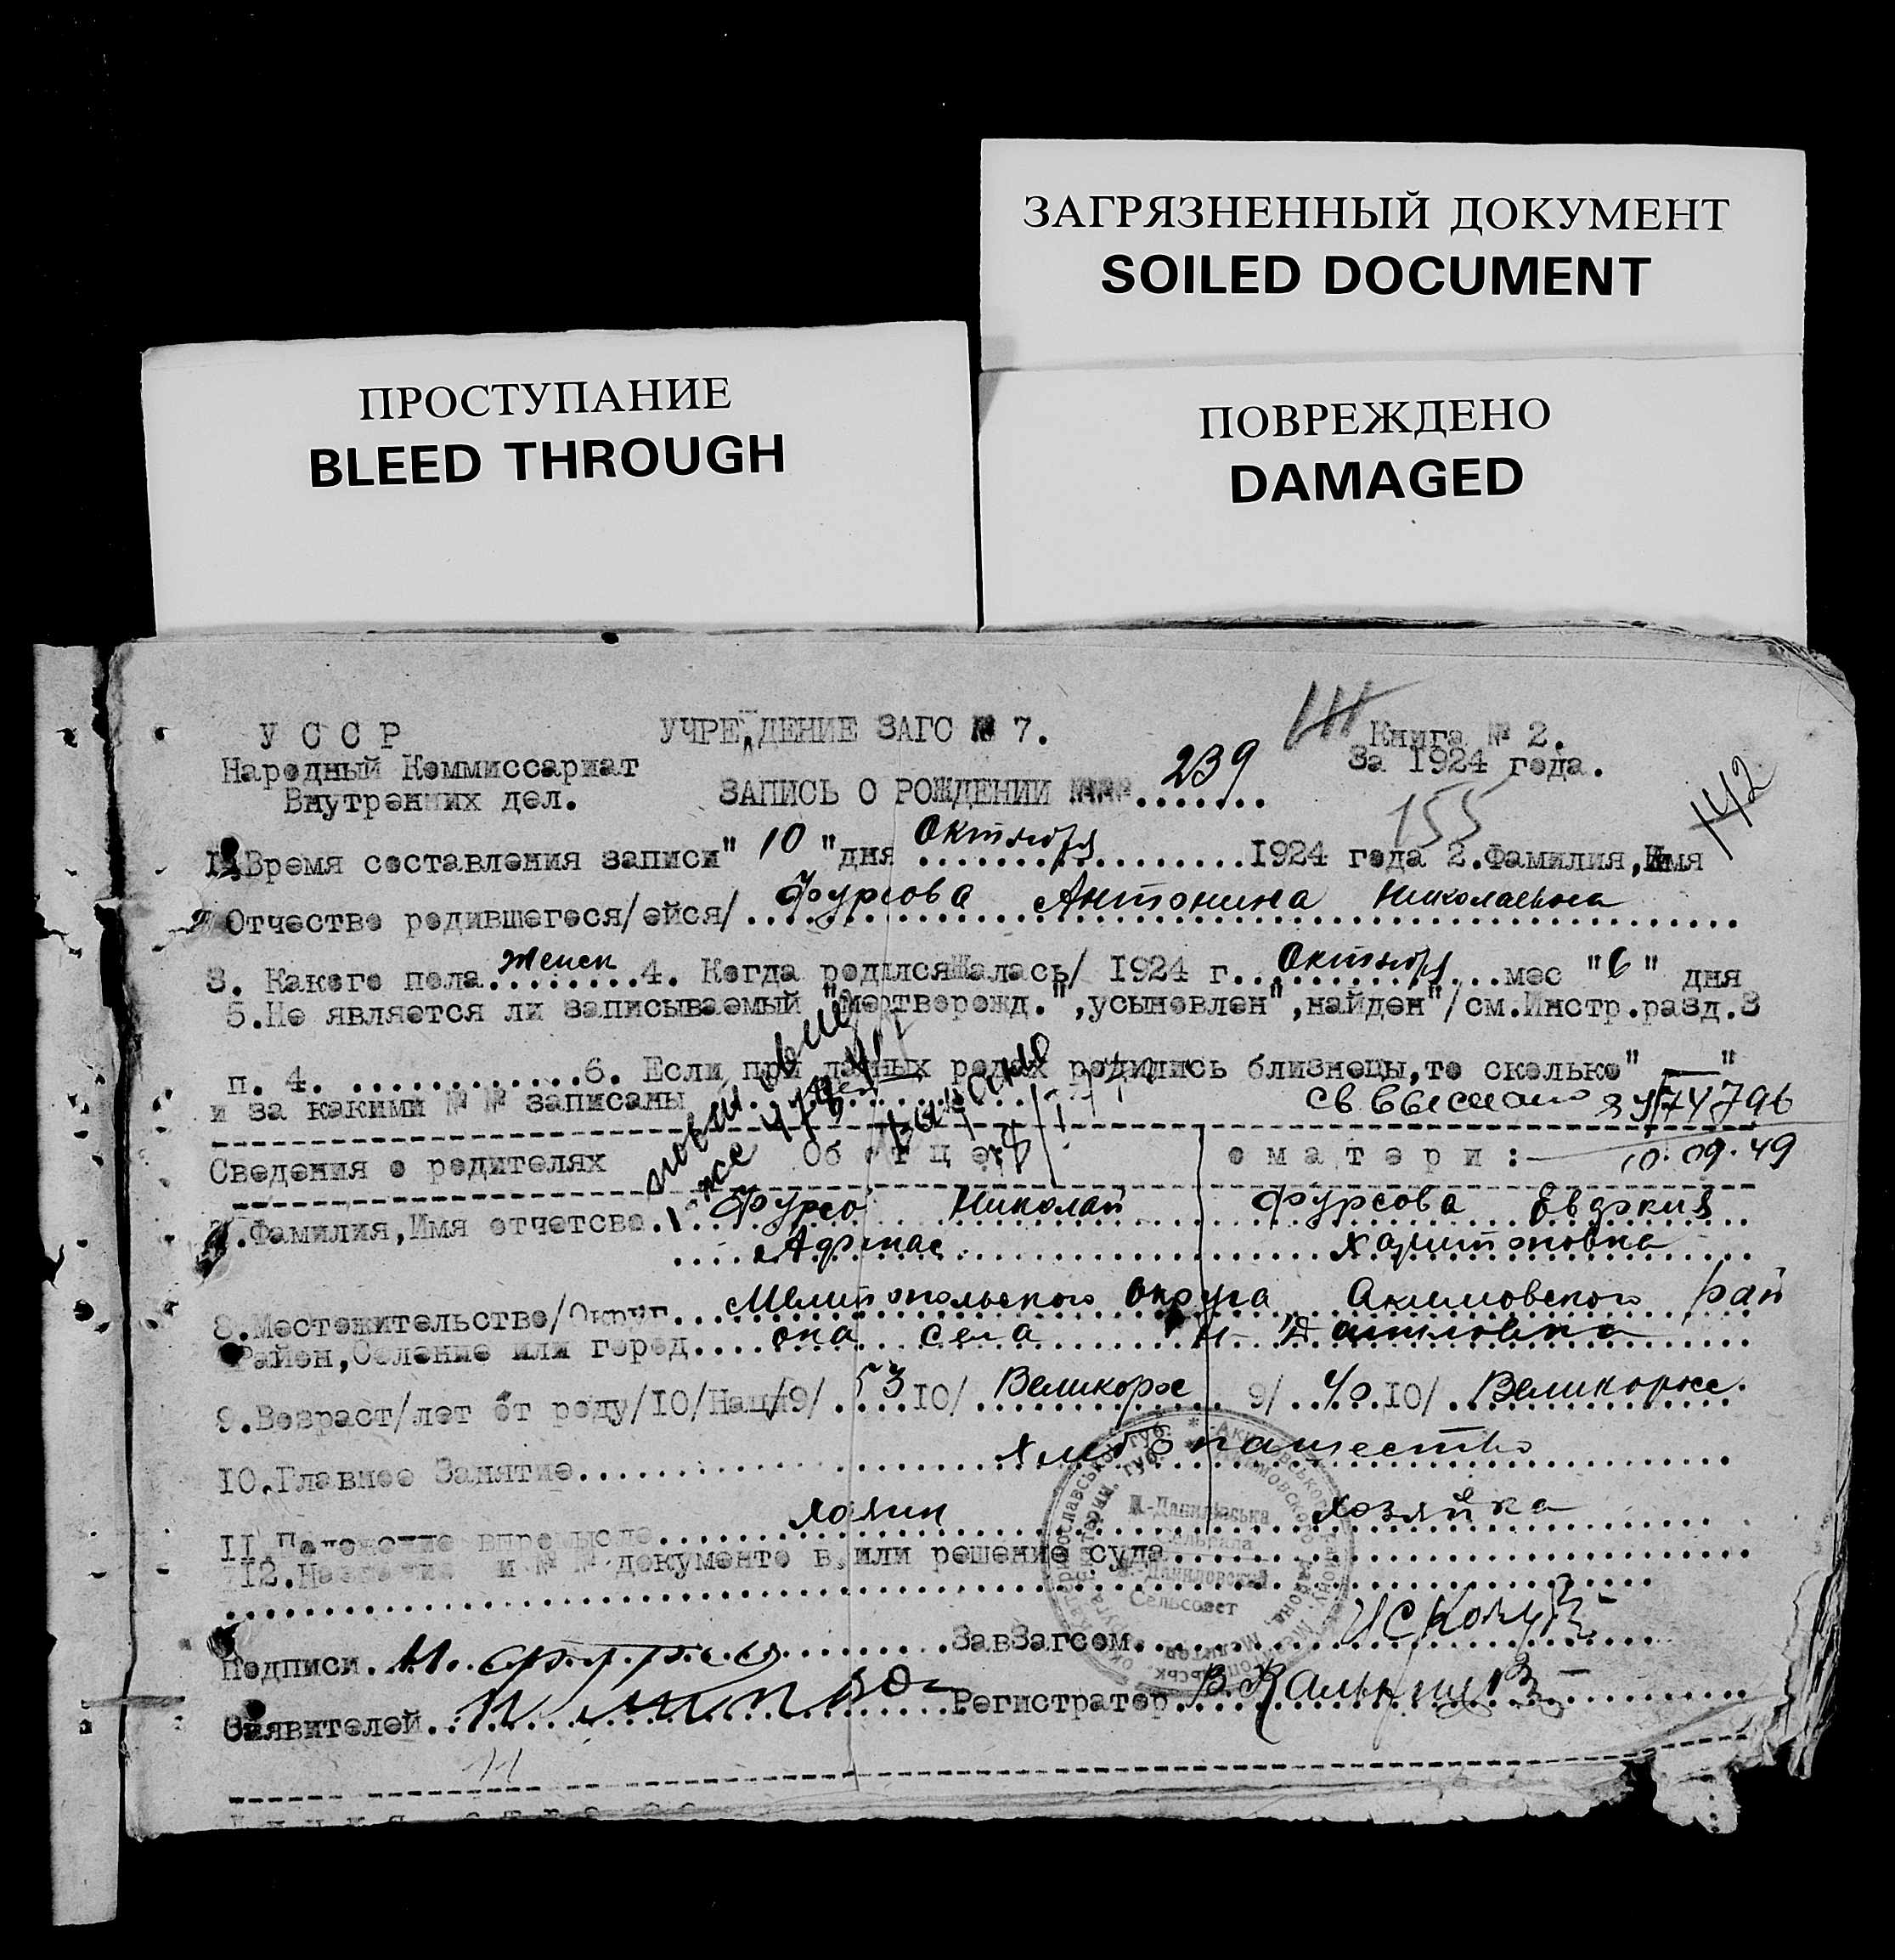 ЗАГРЯЗНЕННЫЙ ДОКУМЕНТ
SOILED DOCUMENT
ПРОСТУПАНИЕ
BLEED THROUGH
ПОВРЕЖДЕНО
DAMAGED
У С С Р
УЧРЕЖДЕНИЕ ЗАГС № 7.
Книга № 2.
Народный Коммиссариат
За 1924 года.
Внутренних дел.
ЗАПИСЬ О РОЖДЕНИИ №№ 239
155
142
1. Время составления записи "10" дня Октября 1924 года 2. Фамилия, Имя
Отчество родившегося/ейся/ Фурсова Антонина Николаевна
3. Какого пола женск 4. Когда родился/лась/ 1924 г. Октября мес "6" дня
5. Не является ли записываемый "мертворожд.", усыновлен", найден"/см. Инстр. разд. 3
п. 4. 6. Если при данных родах родились близнецы, то сколько "—"
и за какими № № записаны
св выслано
10.09.49
Сведения о родителях
Об отце
о матери:
7. Фамилия, Имя отчетсво. Фурсо Николай Фурсова Евдокия
Афанас Харитоновна
8. Местожительство/Округ Мелитопольского округа Акимовского рай
Район, Селение или город она села Н-Даниловка
9. Возраст/лет от роду/10/Нац/9/ 53 10/ Великорос 9/ 40 10/ Великоросс.
10. Главное Занятие хлебопашество
11. Положение впромысле хозяин хозяйка
12. Название и № № документов или решение суда
Н-Данилівська
Сельрада
Н-Даниловский
Сельсовет
Подписи. Н. Фурсо ЗавЗагсом
Заявителей Регистратор